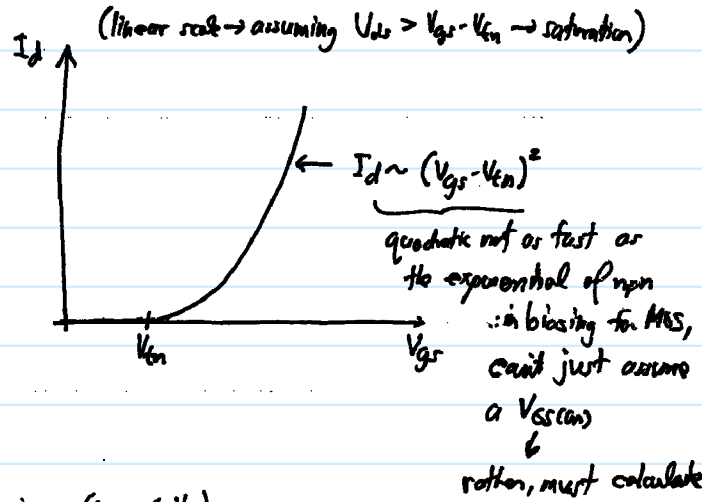 (linear scale → assuming Vds > Vgs - Vtn → saturation)
Id
← Id ~ (Vgs - Vtn)²
quadratic not as fast as
the exponential of npn
∴ in biasing for MOS,
Vtn
Vgs
can't just assume
a VGS(on)
↓
rather, must calculate